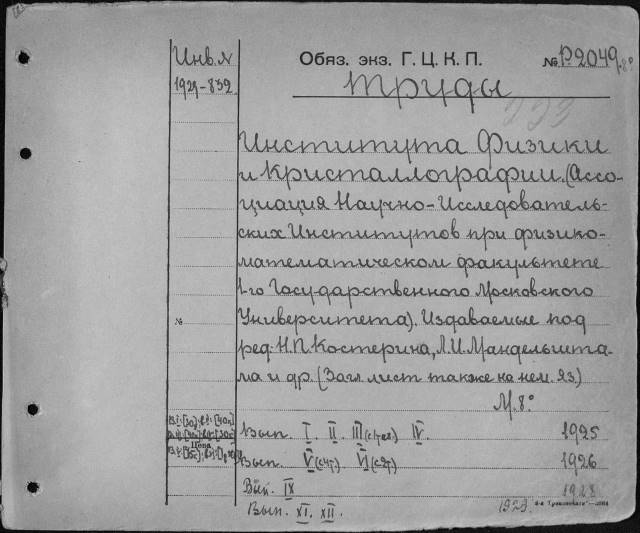 Инв. №
1929-832
Обяз. экз. Г. Ц. К. П.
№ Р.2049.8°
Труды
Института Физики
и Кристаллографии. (Ассо-
циация Научно-Исследователь-
ских Институтов при физико-
математическом факультете
1-го Государственного Московского
Университета). Издаваемые под
ред. Н.П. Костерина, Л.И. Мандельшта-
ма и др. (Загл. лист также на нем. яз.)
М. 8°
№
Цена
Вып. I. II. III (с 1 чер) IV. 1925
Вып. V (с 4 т.) VI (с 2 т) 1926
Вып. IX 1928
Вып. XI. XII. 1929.